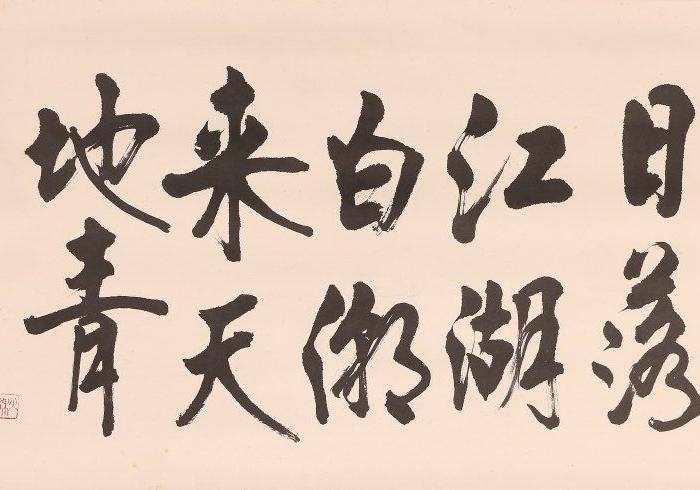 日落
江湖
白潮
来天
地青